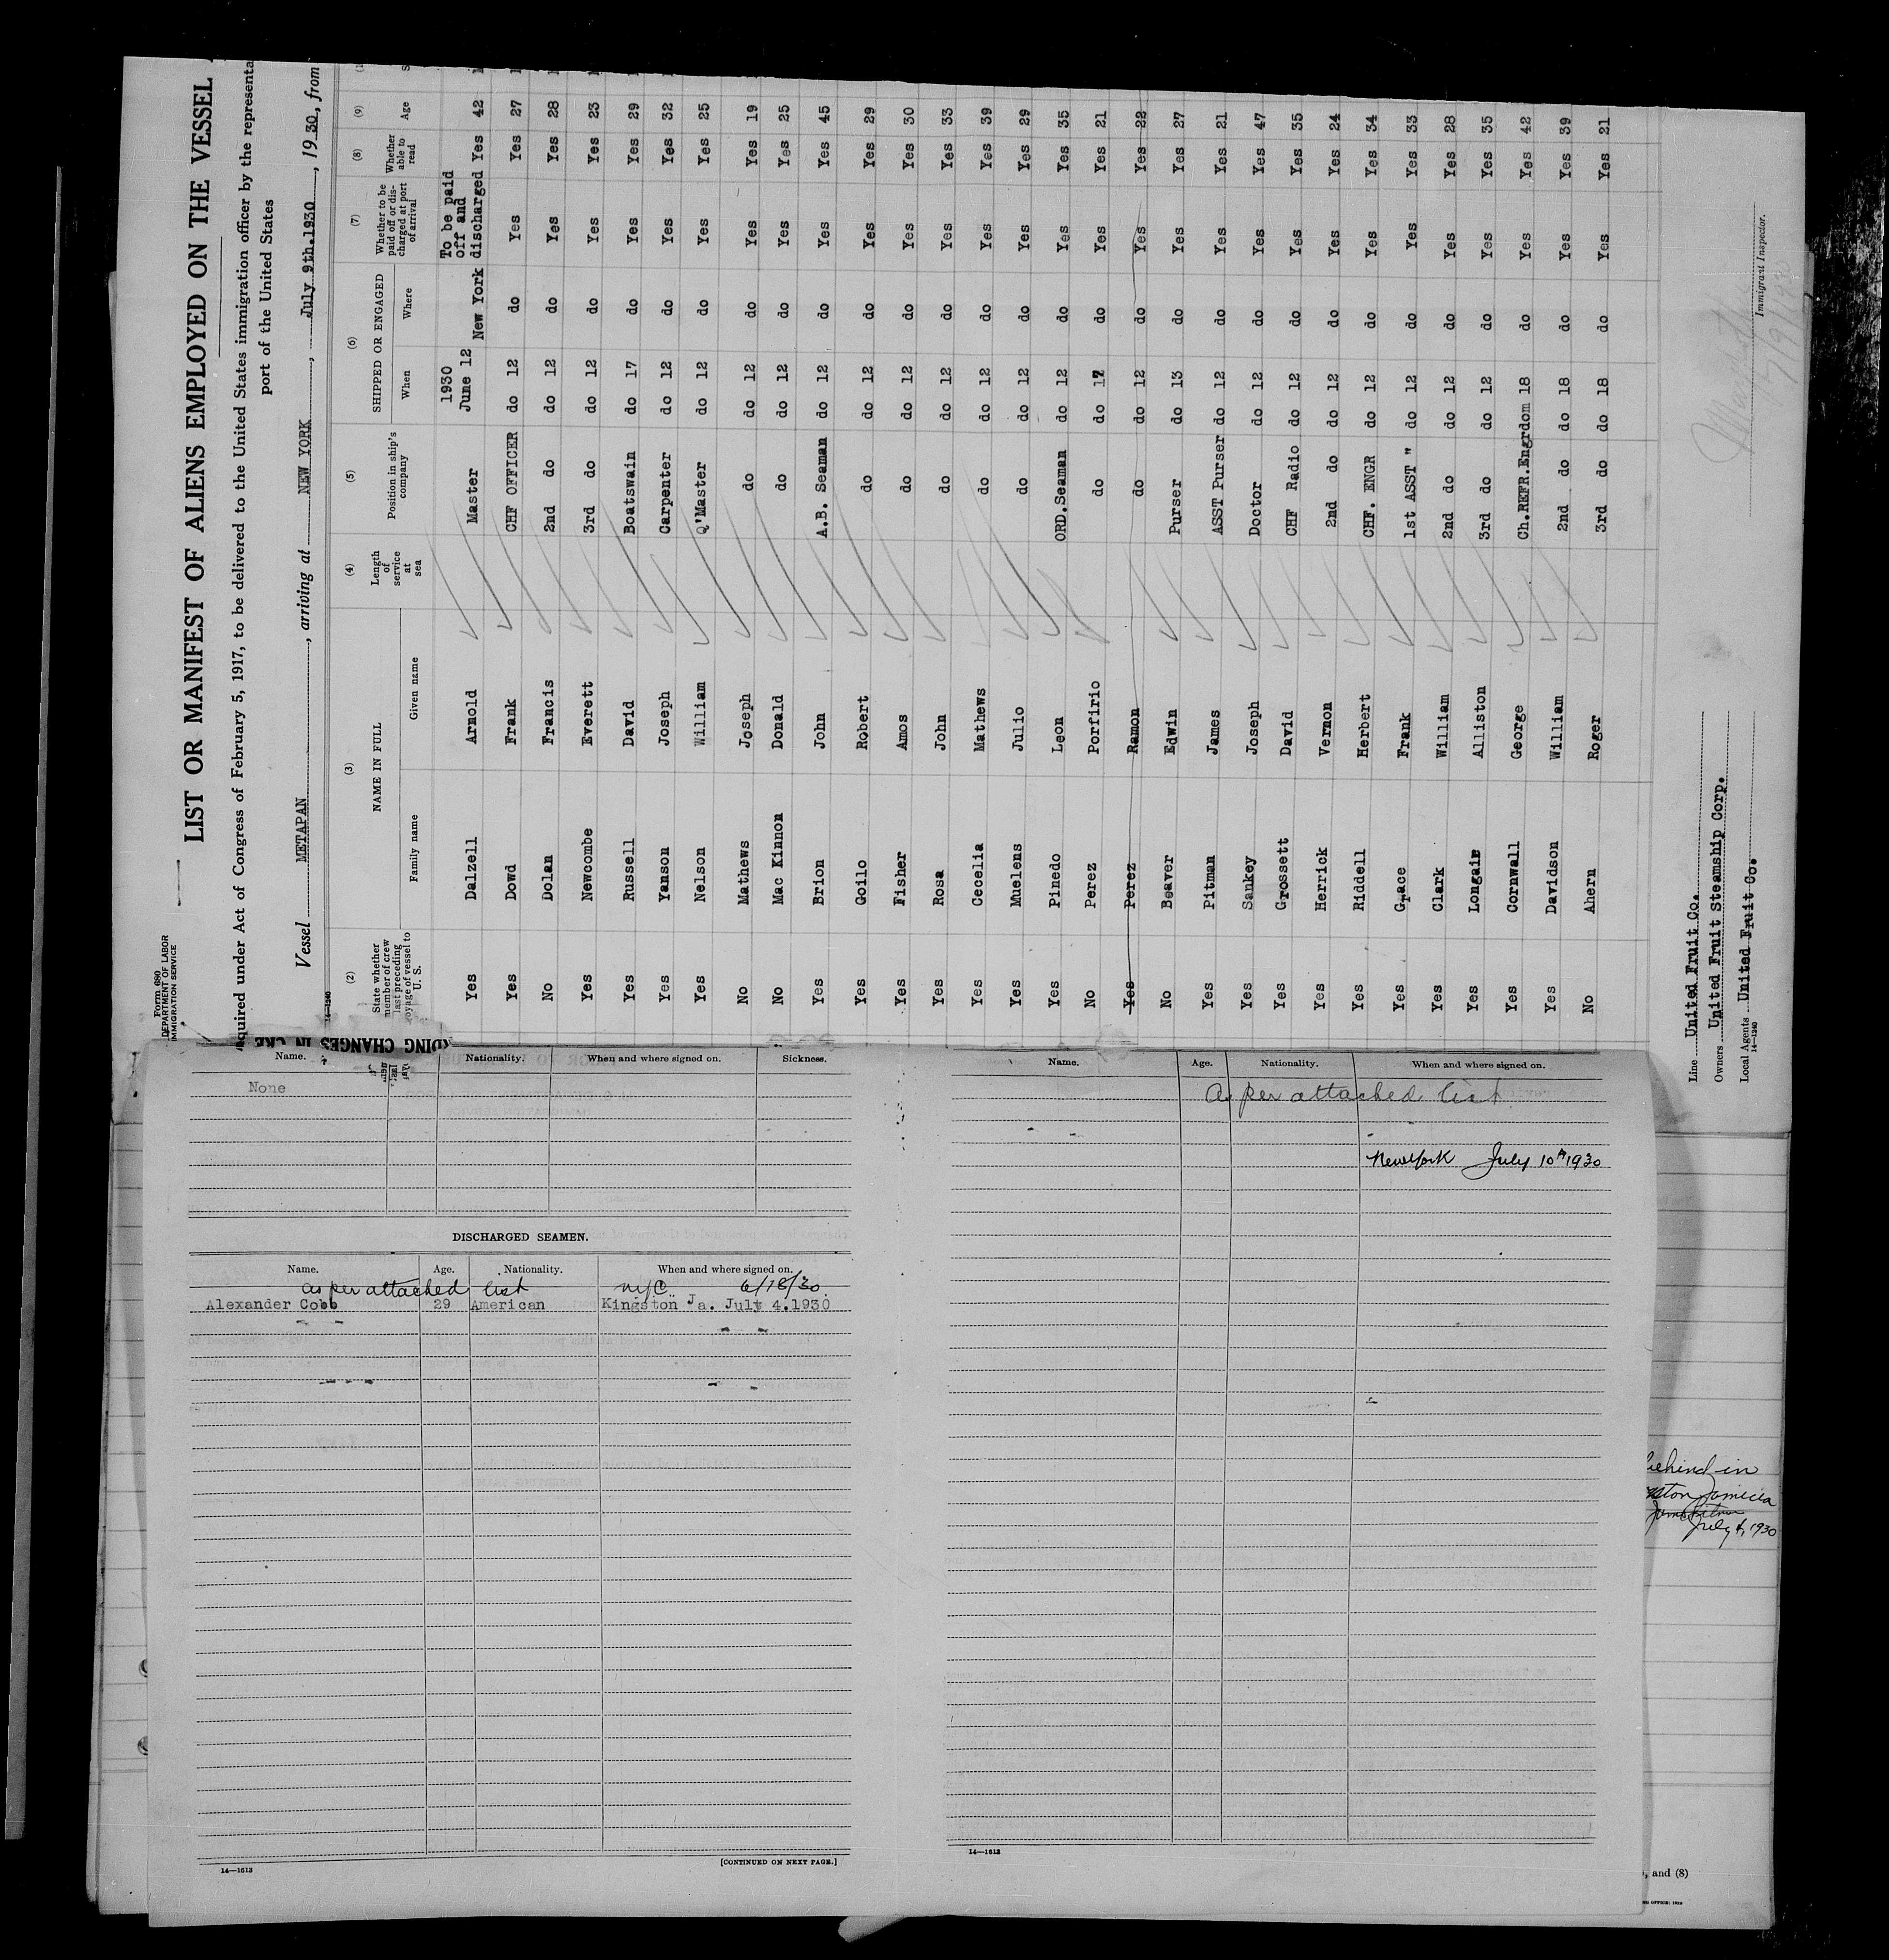 Form 680
DEPARTMENT OF LABOR
IMMIGRATION SERVICE
LIST OR MANIFEST OF ALIENS EMPLOYED ON THE VESSEL
quired under Act of Congress of February 5, 1917, to be delivered to the United States immigration officer by the representa
port of the United States
Vessel METAPAN, arriving at NEW YORK, July 9th.1930, 19 30, from
14—1240
(2) (3) (4) (5) (6) (7) (8) (9)
State whether member of crew last preceding voyage of vessel to U. S. NAME IN FULL Family name Given name Length of service at sea Position in ship's company SHIPPED OR ENGAGED When Where Whether to be paid off or discharged at port of arrival Whether able to read Age
1930 To be paid off and
Yes Dalzell Arnold Master June 12 New York discharged Yes 42
Yes Dowd Frank CHF OFFICER do 12 do Yes Yes 27
No Dolan Francis 2nd do do 12 do Yes Yes 28
Yes Newcombe Everett 3rd do do 12 do Yes Yes 23
Yes Russell David Boatswain do 17 do Yes Yes 29
Yes Yanson Joseph Carpenter do 12 do Yes Yes 32
Yes Nelson William Q'Master do 12 do Yes Yes 25
No Mathews Joseph do do 12 do Yes Yes 19
No Mac Kinnon Donald do do 12 do Yes Yes 25
Yes Brion John A.B. Seaman do 12 do Yes Yes 45
Yes Goilo Robert do do 12 do Yes Yes 29
Yes Fisher Amos do do 12 do Yes Yes 30
Yes Rosa John do do 12 do Yes Yes 33
Yes Cecelia Mathews do do 12 do Yes Yes 39
Yes Muelens Julio do do 12 do Yes Yes 29
Yes Pinedo Leon ORD.Seaman do 12 do Yes Yes 35
No Perez Porfirio do do 17 do Yes Yes 21
Yes Perez Ramon do do 12 do Yes Yes 22
No Beaver Edwin Purser do 13 do Yes Yes 27
Yes Pitman James ASST Purser do 12 do Yes Yes 21
Yes Sankey Joseph Doctor do 12 do Yes Yes 47
Yes Grossett David CHF Radio do 12 do Yes Yes 35
Yes Herrick Vernon 2nd do do 12 do Yes Yes 24
Yes Riddell Herbert CHF. ENGR do 12 do Yes Yes 34
Yes Grace Frank 1st ASST " do 12 do Yes Yes 33
Yes Clark William 2nd do do 12 do Yes Yes 28
Yes Longair Alliston 3rd do do 12 do Yes Yes 35
Yes Cornwall George Ch.REFR.Engrdom 18 do Yes Yes 42
Yes Davidson William 2nd do do 18 do Yes Yes 39
No Ahern Roger 3rd do do 18 do Yes Yes 21
Line United Fruit Co.
Owners United Fruit Steamship Corp.
Local Agents United Fruit Co.
14—1240
Immigrant Inspector.
DING CHANGES IN CRE
Name. Nationality. When and where signed on. Sickness.
None
DISCHARGED SEAMEN.
Name. Age. Nationality. When and where signed on.
as per attached list NYC 6/18/30
Alexander Cobb 29 American Kingston Ja. July 4.1930
14—1613
[CONTINUED ON NEXT PAGE.]
Name. Age. Nationality. When and where signed on.
As per attached list
New York July 10th 1930
14—1613
behind in
July 4, 1930
, and (8)